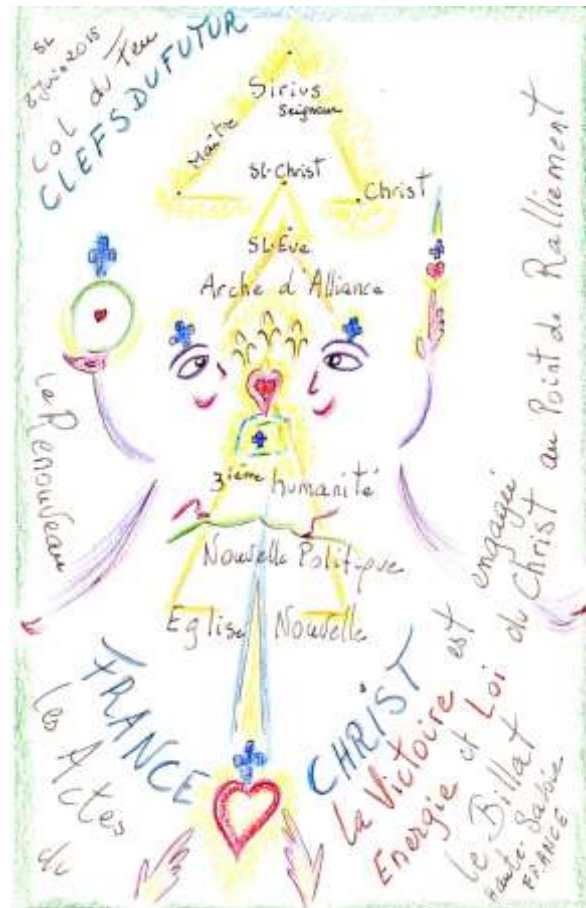 SL
8 Juin 2015
Col du Feu
CLEFSDUFUTUR
Sirius
Seigneur
Maître
SL-Christ
Christ
SL-Eve
Arche d'Alliance
Le Renouveau
3ième humanité
Nouvelle Politique
Eglise Nouvelle
FRANCE CHRIST
Les Actes
du
La Victoire est engagée
Energie et Loi du Christ au Point de Ralliement
Le Billat
Haute-Savoie
FRANCE